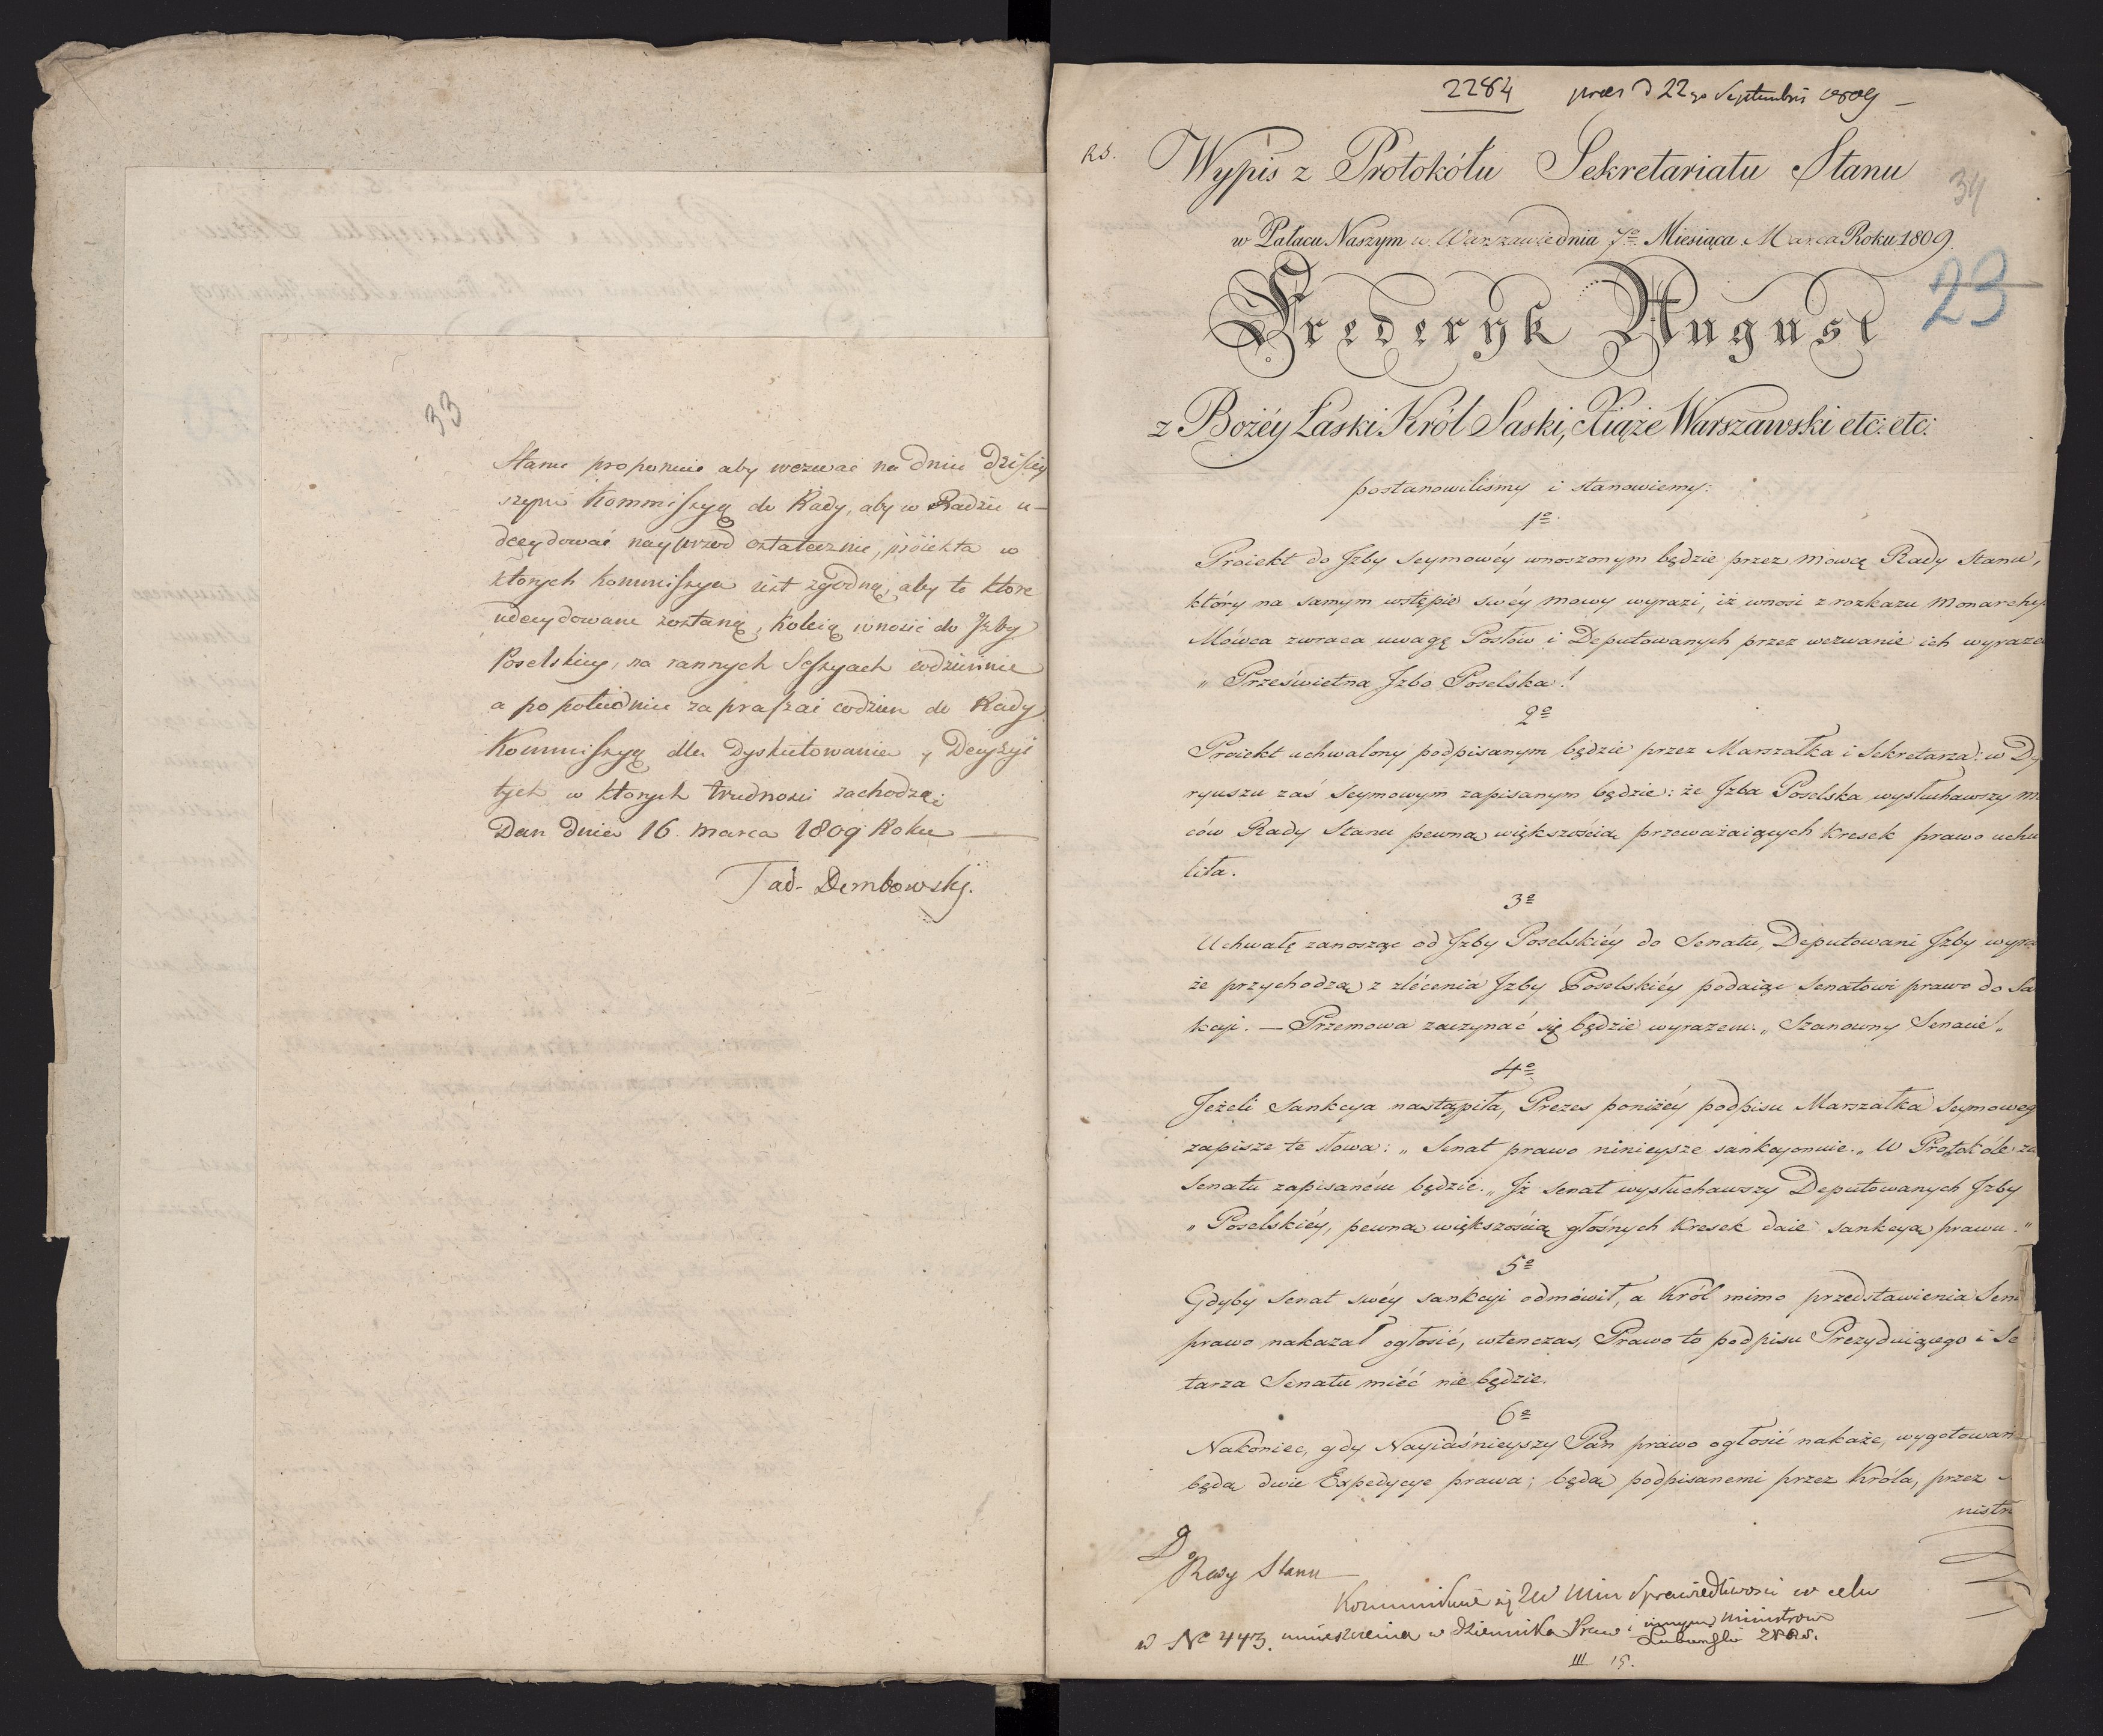 33
Stanu proponuie aby wezwać na dniu dzisiey
szym Kommissyą do Rady, aby w Radzie u-
decydować nayprzod ostatecznie, proiekta w
ktorych Kommissya iest zgodną, aby te ktore
udecydowane zostaną, koleią wnosić do Jzby
Poselskiey, na rannych Sessyach codziennie
a po południu zapraszać codzien do Rady
Kommissyą dla Dyskutowania y Decyzyi
tych w ktorych trudności zachodzą;
Dan dnia 16. Marca 1809 Roku
Tad. Dembowski.
2284 praes d 22go Septembris 1809
RS.
Wypis z Protokółu Sekretariatu Stanu
34
w Pałacu Naszym w Warszawie dnia 7º Miesiąca Marca Roku 1809.
23
Frederyk August
z Bożéy Łaski Król Saski, Xiąże Warszawski etc: etc:
postanowiliśmy i stanowiemy:
1º
Proiekt do Jzby Seymowéy wnoszonym będzie przez Mówcę Rady Stanu,
który na samym wstępie swéy mowy wyrazi, iż wnosi z rozkazu Monarchy
Mówca zwraca uwagę Posłów i Deputowanych przez wezwanie ich wyraze
„ Prześwietna Jzbo Poselska!
2º
Proiekt uchwalony podpisanym będzie przez Marszałka i Sekretarza: w Dy
ryuszu zaś Seymowym zapisanym będzie: że Jzba Poselska wysłuchawszy M
ców Rady Stanu pewną większością przeważaiących kresek prawo uchwa
liła.
3º
Uchwałę zanosząc od Jzby Poselskiéy do Senatu, Deputowani Jzby wyra
że przychodzą z zlécenia Jzby Poselskiéy podaiąc Senatowi prawo do Sa
kcyi. — Przemowa zaczynać się będzie wyrazem: „ Szanowny Senacie „
4º
Jeżeli Sankcya nastąpiła, Prezes poniżéy podpisu Marszałka Seymoweg
zapisze te słowa: „ Senat prawo ninieysze sankcyonuie. „ W Protokóle zaś
Senatu zapisaném będzie. „ Jż Senat wysłuchawszy Deputowanych Jzby
„ Poselskiéy, pewną większością głośnych kresek daie sankcyą prawu. „
5º
Gdyby Senat swéy sankcyi odmówił, a Król mimo przedstawienia Sena
prawo nakazał ogłosić, wtenczas, Prawo to podpisu Prezyduiącego i Se
tarza Senatu miéć nie będzie.
6º
Nakoniec, gdy Nayiaśnieyszy Pan prawo ogłosić nakaże, wygotowan
będą dwie Expedycye prawa; będą podpisanemi przez Króla, przez
nistr
Do
Rady Stanu
Kommunikuie się JW Min Sprawiedliwości w celu
N° 443. umieszczenia w dzienniku Praw i innym Ministrom
Lubieński
III 15.